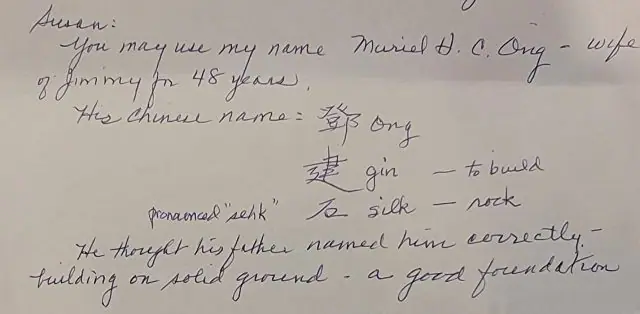 Susan:
You may use my name Muriel H. C. Ong - wife
of Jimmy for 48 years.
His Chinese name = 鄧 Ong
建 gin - to build
pronounced "sehk" 石 silk - rock
He thought his father named him correctly -
building on solid ground - a good foundation